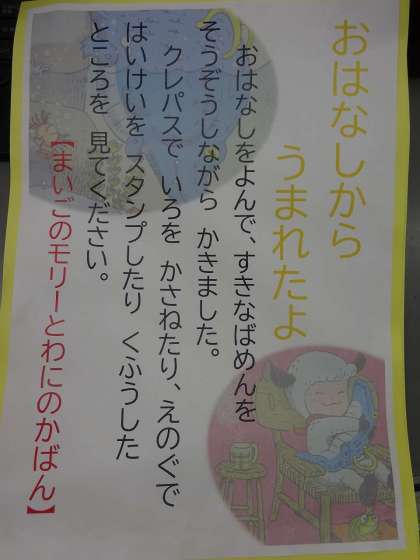 おはなしから
うまれたよ
おはなしをよんで、すきなばめんを
そうぞうしながら かきました。
クレパスで いろを かさねたり、えのぐで
はいけいを スタンプしたり くふうした
ところを 見てください。
【まいごのモリーとわにのかばん】